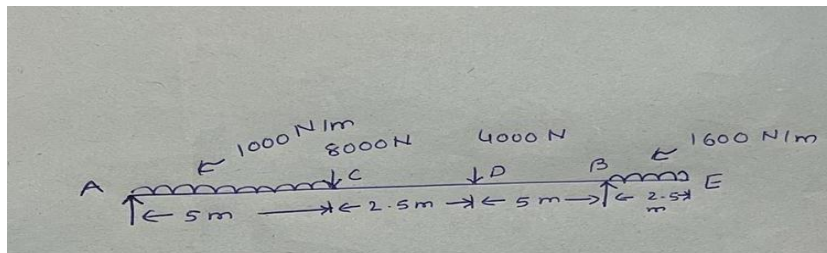 1000 N/m
8000N
4000 N
1600 N/m
A
C
D
B
E
5 m
2.5m
5 m
2.5
m